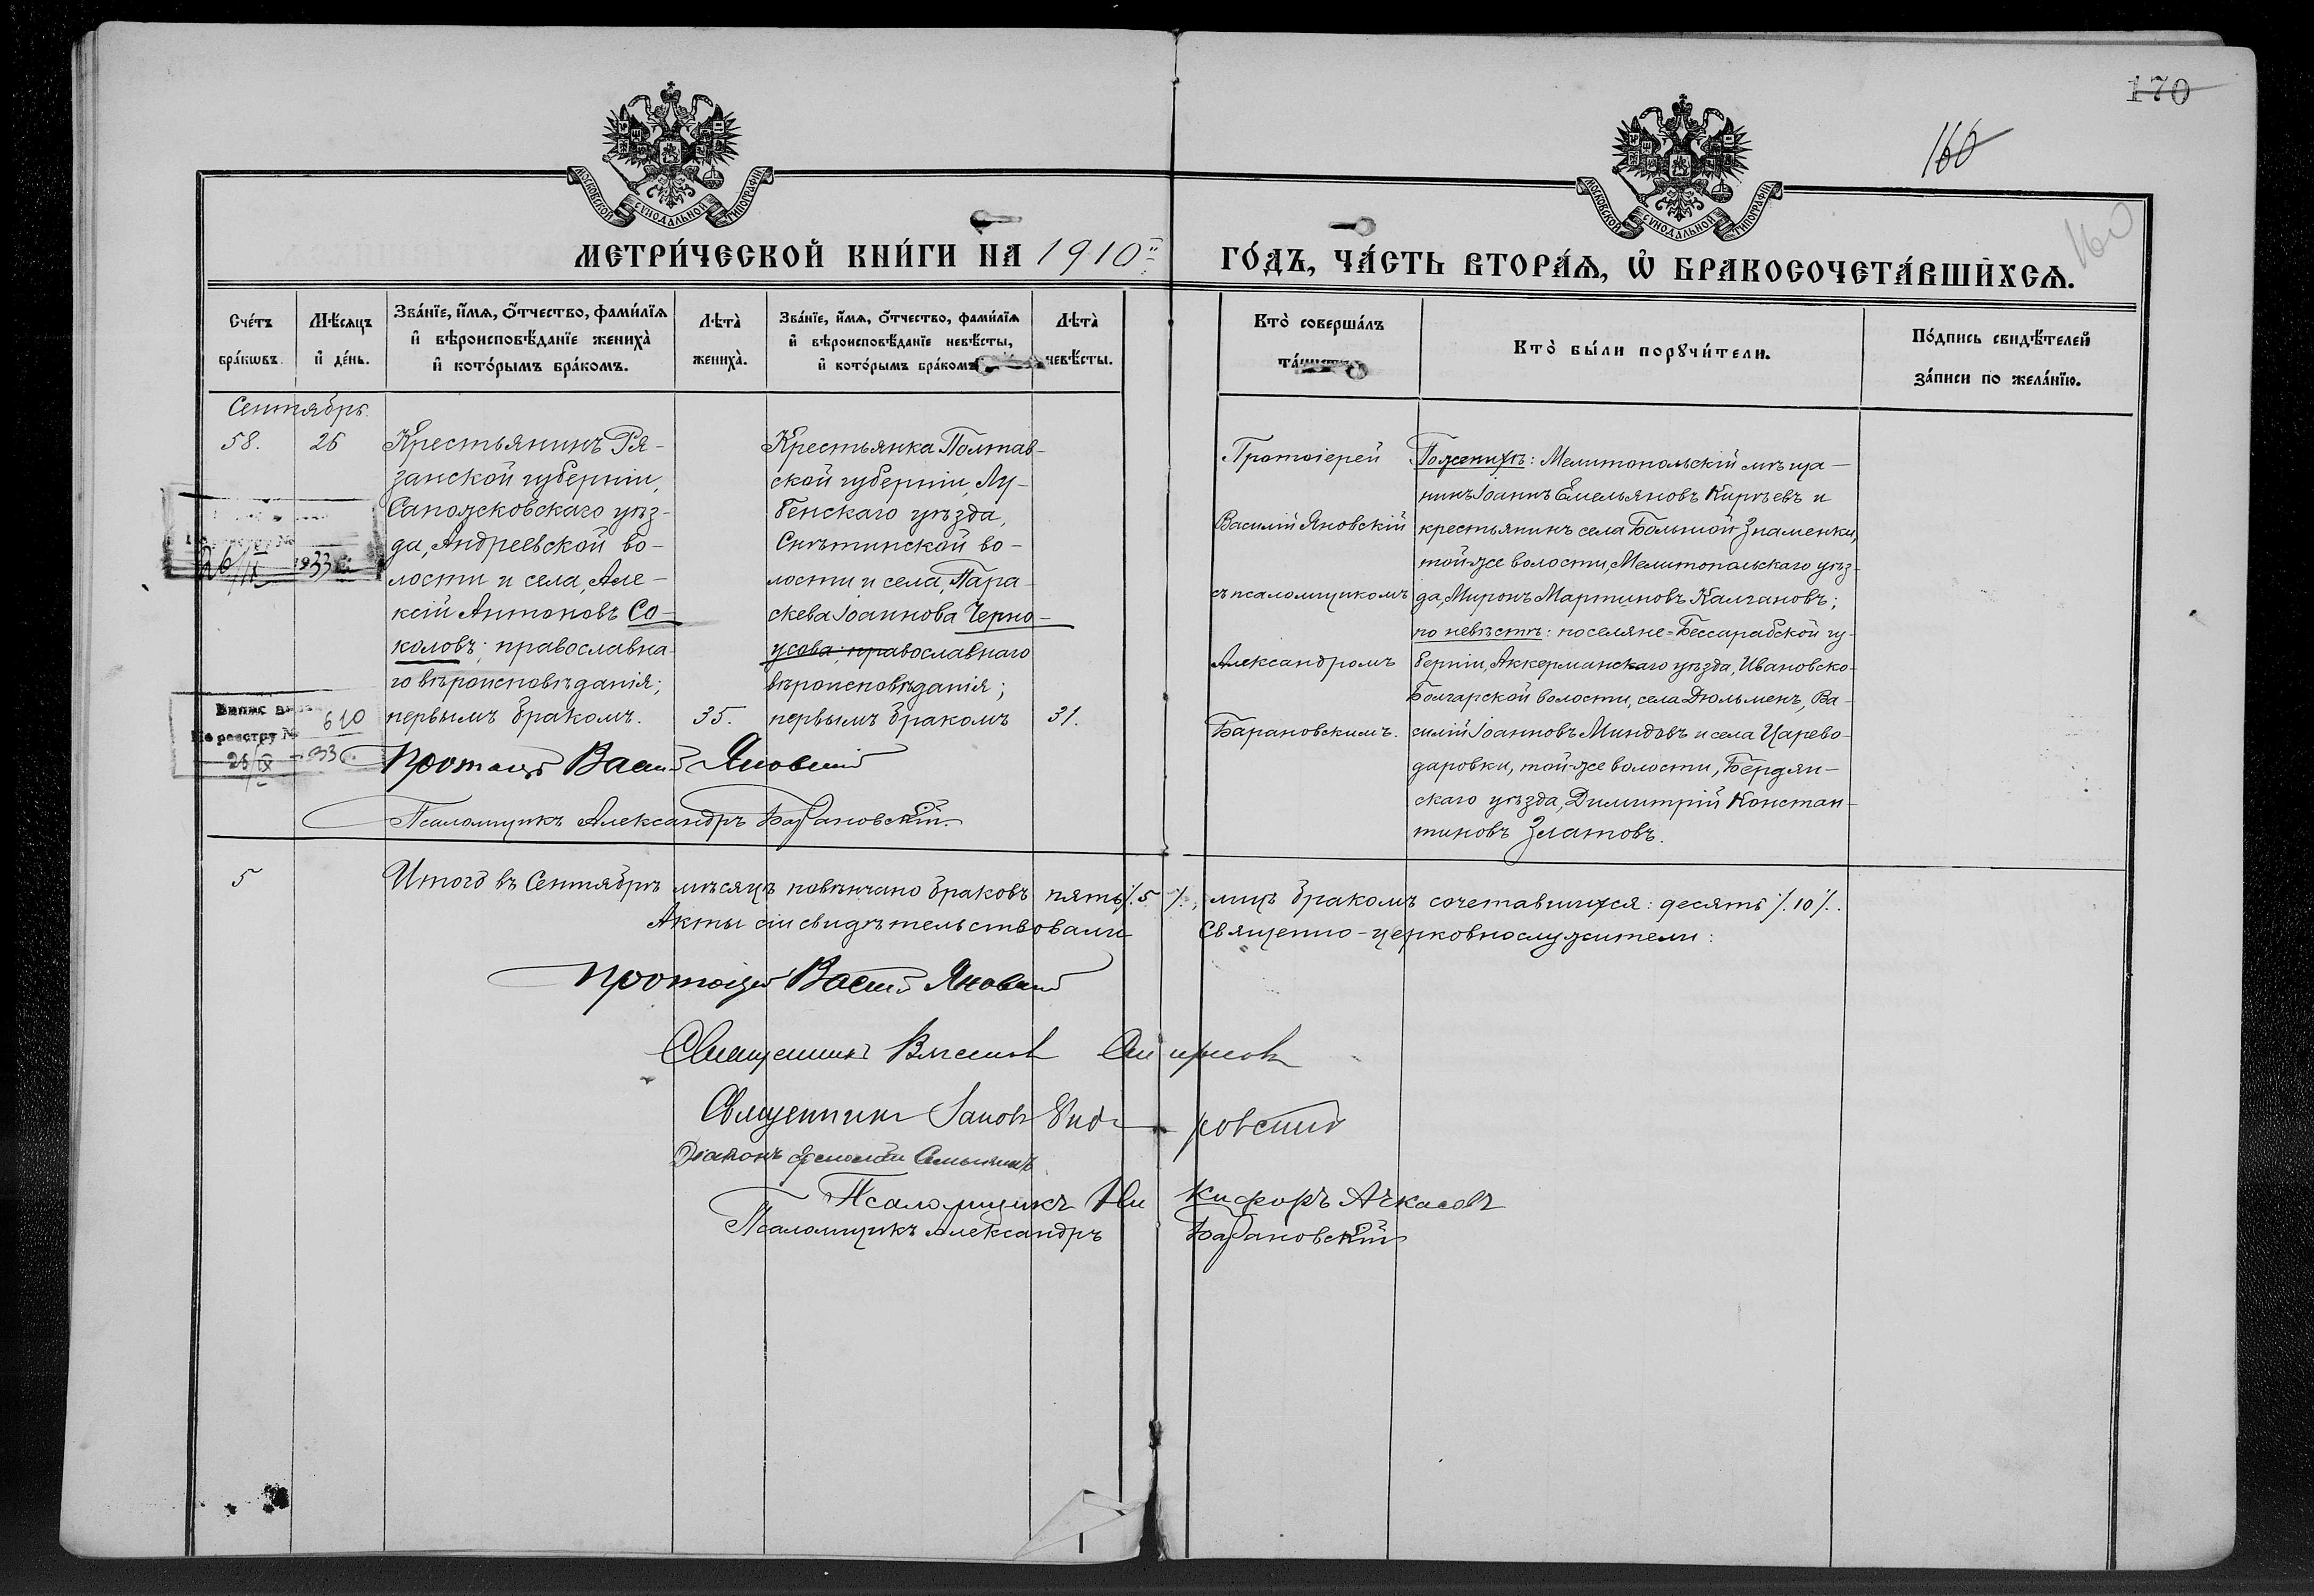 170
160
160
МОСКОВСКОЙ СѴНОДАЛЬНОЙ ТИПОГРАФІИ
МОСКОВСКОЙ СѴНОДАЛЬНОЙ ТИПОГРАФІИ
МЕТРИ́ЧЕСКОЙ КНИ́ГИ НА 1910й
ГО́ДЪ, ЧА́СТЬ ВТОРА́Ѧ, Ѽ БРАКОСОЧЕТА́ВШИХСѦ.
Сче́тъ
бра́кωвъ.
Мѣ́сѧцъ
и҆ де́нь.
Зва́нїе, и҆́мѧ, ѻ҆́тчество, фами́лїѧ
и҆ вѣроисповѣ́данїе жениха̀
и҆ кото́рымъ бра́комъ.
Лѣта̀
жениха̀.
Зва́нїе, и҆́мѧ, ѻ҆́тчество, фами́лїѧ
и҆ вѣроисповѣ́данїе невѣ́сты,
и҆ кото́рымъ бра́комъ
Лѣта̀
невѣ́сты.
Кто̀ соверша́лъ
Кто̀ бы́ли порꙋчи́тели.
По́дпись свидѣ́телей
за́писи по жела́нїю.
Сентябрь.
58.
26
Крестьянинъ Ря-
занской губерніи,
Сапожсковскаго уѣз-
да, Андреевской во-
лости и села, Але-
ксій Антоновъ Со-
коловъ; православна-
го вѣроисповѣданія;
первымъ бракомъ.
35.
Крестьянка Полтав-
ской губерніи, Лу-
бенскаго уѣзда,
Снѣтинской во-
лости и села, Пара-
скева Іоаннова Черно-
усова; православнаго
вѣроисповѣданія;
первымъ бракомъ
31.
Протоіерей
Василій Яновскій
съ псаломщикомъ
Александромъ
Барановскимъ.
По женихѣ: Мелитопольскій мѣща-
нинъ Іоаннъ Емельяновъ Кирѣевъ и
крестьянинъ села Большой Знаменки,
той-же волости, Мелитопольскаго уѣз-
да, Миронъ Мартиновъ Калгановъ;
по невѣстѣ: поселяне=Бессарабской гу-
берніи, Аккерманскаго уѣзда, Ивановско-
Болгарской волости, села Дюльменъ, Ва-
силій Іоанновъ Миндовъ и села Царево-
даровки, той-же волости, Бердян-
скаго уѣзда, Димитрій Констан-
тиновъ Златовъ.
26/IX 1933
Випис
По реестру № 610
26/IX 33
Протоіерей Василій Яновскій
Псаломщикъ Александръ Барановскій.
5
Итого въ Сентябрѣ мѣсяцѣ повѣнчано браковъ пять ∕.5 ∕., лицъ бракомъ сочетавшихся: десять ∕.10 ∕.
Акты сіи свидѣтельствовали Священно-церковнослужители:
Протоіерей Василій Яновскій
Священникъ
Священникъ Іаковъ
Діаконъ
Псаломщикъ Никифоръ Ачкасовъ
Псаломщикъ Александръ Барановскій